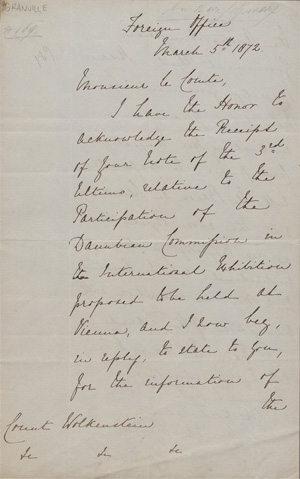 GRANVILLE
Foreign Office
March 5th 1872.
Monsieur le Comte,
I have the Honor to
acknowledge the Receipt
of Your Note of the 3rd
Ultimo, relative to the
Participation of the
Danubian Commission in
the International Exhibition
proposed to be held at
Vienna, and I now beg,
in reply, to state to you,
for the information of
the
Count Wolkenstein
&c &c &c